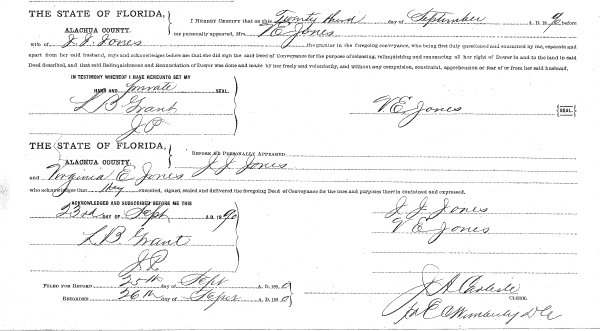 THE STATE OF FLORIDA,
ALACHUA COUNTY.
I HEREBY CERTIFY that on this Twenty third day of September A. D. 18 90 before
me personally appeared, Mrs. V E Jones
wife of J. J. Jones the grantor in the foregoing conveyance, who being first duly questioned and examined by me, separate and
apart from her said husband, says and acknowledges before me that she did sign the said Deed of Conveyance for the purpose of releasing, relinquishing and renouncing all her right of Dower in and to the land in said
Deed described, and that said Relinquishment and Renunciation of Dower was done and made by her freely and voluntarily, and without any compulsion, constraint, apprehension or fear of or from her said husband,
IN TESTIMONY WHEREOF I HAVE HEREUNTO SET MY
HAND AND private SEAL.
L B Grant
J P
V E. Jones SEAL.
THE STATE OF FLORIDA,
ALACHUA COUNTY.
BEFORE ME PERSONALLY APPEARED
J J Jones
and Virginia E Jones
who acknowledges that they executed, signed, sealed and delivered the foregoing Deed of Conveyance for the uses and purposes therein contained and expressed.
ACKNOWLEDGED AND SUBSCRIBED BEFORE ME THIS
23rd DAY OF Sept A. D. 18 90
L B Grant
J P.
J J Jones
V E Jones
FILED FOR RECORD 25th day of Sept A. D. 18 90
RECORDED 26th day of Sept A. D. 18 90
J A Carlisle
CLERK.
pr E C Wimberly D C